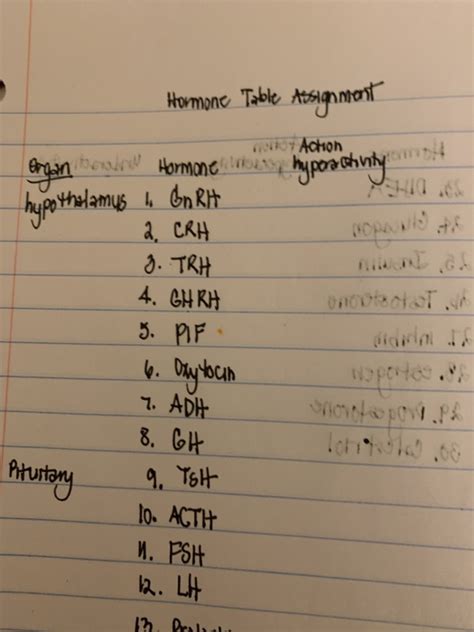 Hormone Table Assignment
Action
Organ Hormone hyperactivity
hypothalamus 1. GnRH
2. CRH
3. TRH
4. GHRH
5. PIF
6. Oxytocin
7. ADH
8. GH
Pituitary 9. TSH
10. ACTH
11. FSH
12. LH
13.